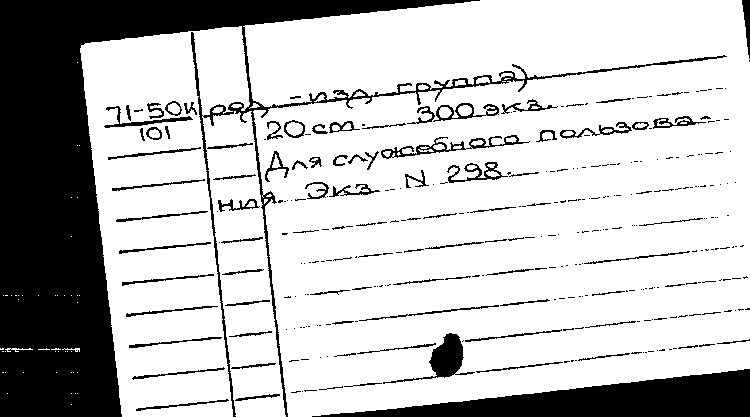 71-50к ред. - изд. группа).
101 20 cm. 300 экз.
Для служебного пользова-
ния. Экз N 298.